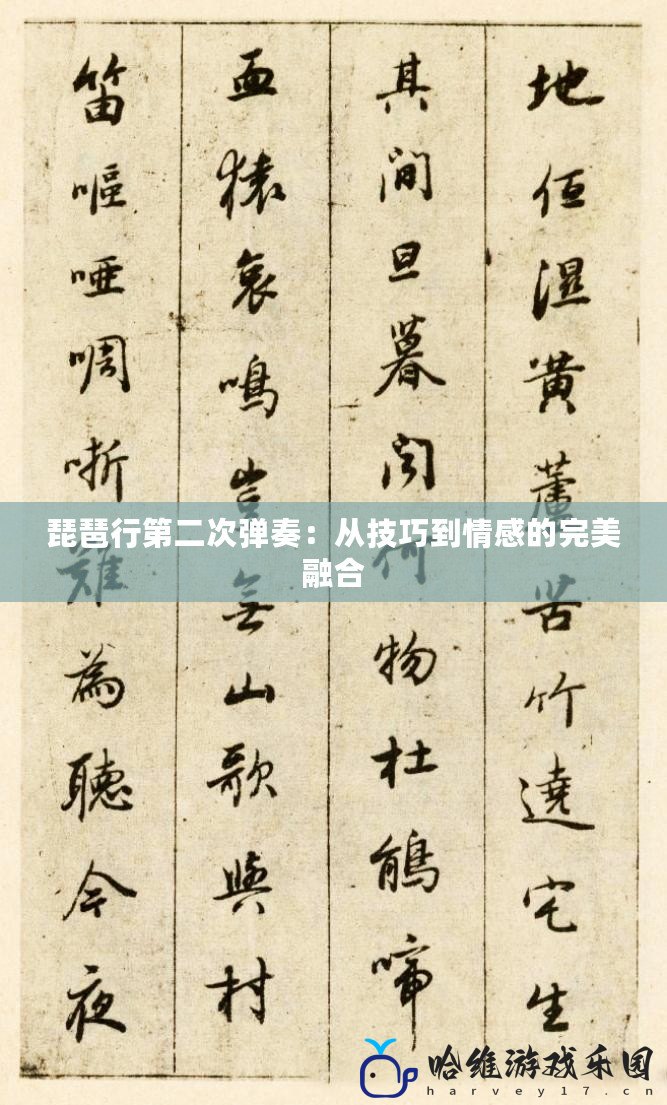 地低濕黃蘆苦竹遶宅生
其間旦暮聞何物杜鵑啼
血猿哀鳴豈無山歌與村
笛嘔啞啁哳難為聽今夜
琵琶行第二次弹奏：从技巧到情感的完美
融合
哈维游戏乐园
harvey17.cn